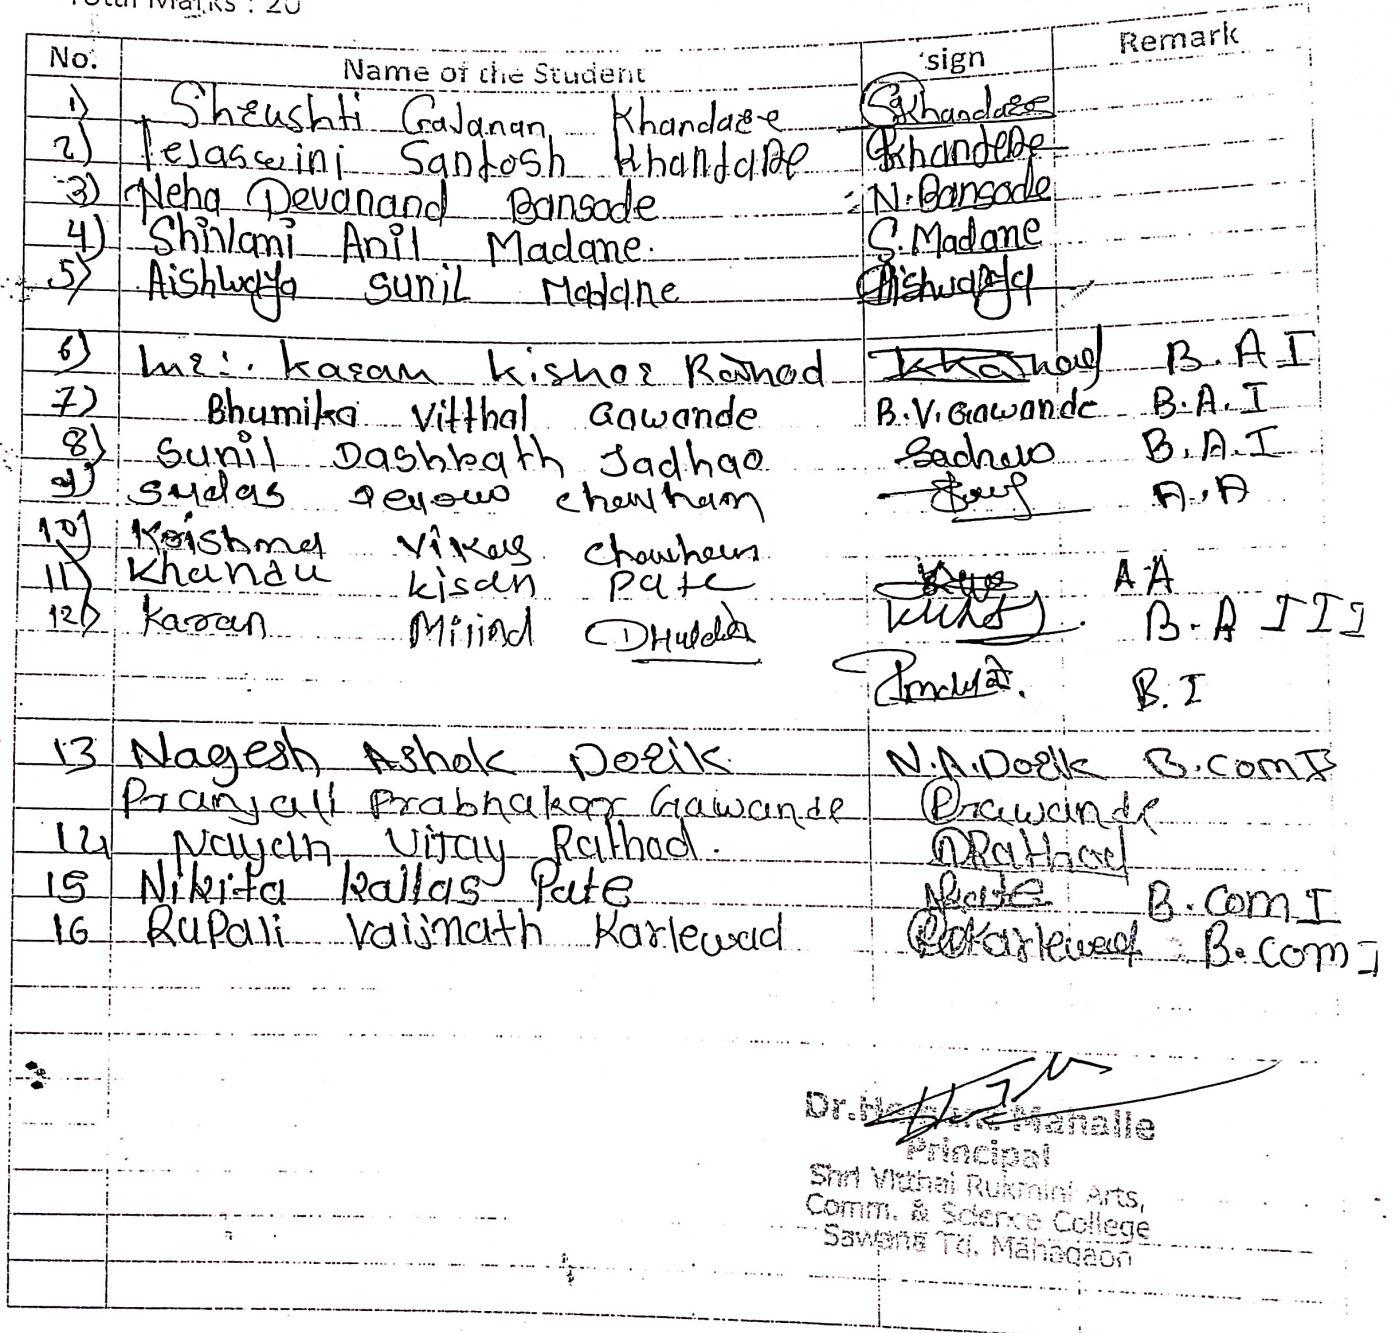 Total Marks : 20
No. Name of the Student sign Remark
1) Shrushti Gajanan Khandare SKhandare
2) Tejaswini Santosh Khandare Khandere
3) Neha Devanand Bansode N. Bansode
4) Shivani Anil Madane. S. Madane
5) Aishwarya Sunil Madane Aishwarya
6) Mr. Karan Kishor Rathod KRathod B.A I
7) Bhumika Vitthal Gawande B.V. Gawande B.A.I
8) Sunil Dashrath Jadhao B.A.I
9) Sudas Chowham A.A
10) Krishma Vikas Chowhan
11) Khandu Kisan Pate A A
12) Karan Milind B.A III
B.I
13 Nagesh Ashok Dorik N.A.Dorik B.com I
Pranjali Prabhakar Gawande
14 Nayan Vijay Rathod. NRathod
15 Nikita Kailas Pate Pate B.com I
16 Rupali Vaijnath Karlewad RKarlewad B.com I
Dr. Mahalle
Principal
Shri Vitthal Rukmini Arts,
Comm. & Science College
Sawana Tq. Mahagaon